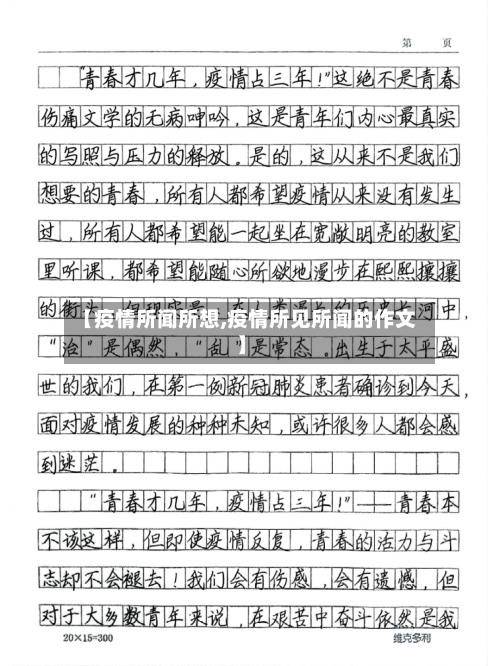 第 页
“青春才几年，疫情占三年！”这绝不是青春
伤痛文学的无病呻吟，这是青年们内心最真实
的写照与压力的释放。是的，这从来不是我们
想要的青春，所有人都希望疫情从来没有发生
过，所有人都希望能一起坐在宽敞明亮的教室
里听课，都希望能随心所欲地漫步在熙熙攘攘
的街头，但现实是，在人类漫长的历史长河中，
【疫情所闻所想,疫情所见所闻的作文
】
“治”是偶然，“乱”是常态。出生于太平盛
世的我们，在第一例新冠肺炎患者确诊到今天，
面对疫情发展的种种未知，或许很多人都会感
到迷茫。
“青春才几年，疫情占三年！”——青春本
不该这样，但即使疫情反复，青春的活力与斗
志却不会褪去！我们会有伤感，会有遗憾，但
对于大多数青年来说，在艰苦中奋斗依然是我
20×15=300 维克多利